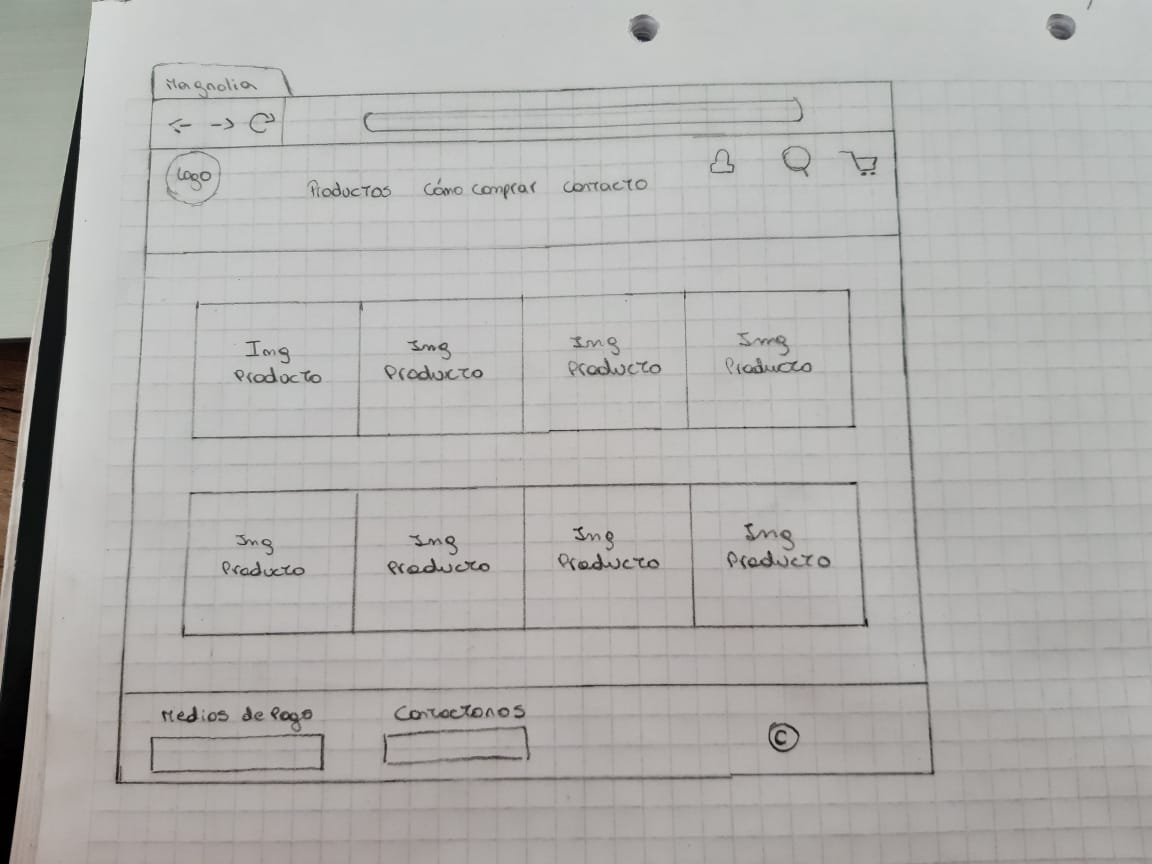 Magnolia
Logo
Productos Cómo comprar contacto
Img
Producto
Img
Producto
Img
Producto
Img
Producto
Img
Producto
Img
Producto
Img
Producto
Img
Producto
Medios de Pago
Contactonos
©